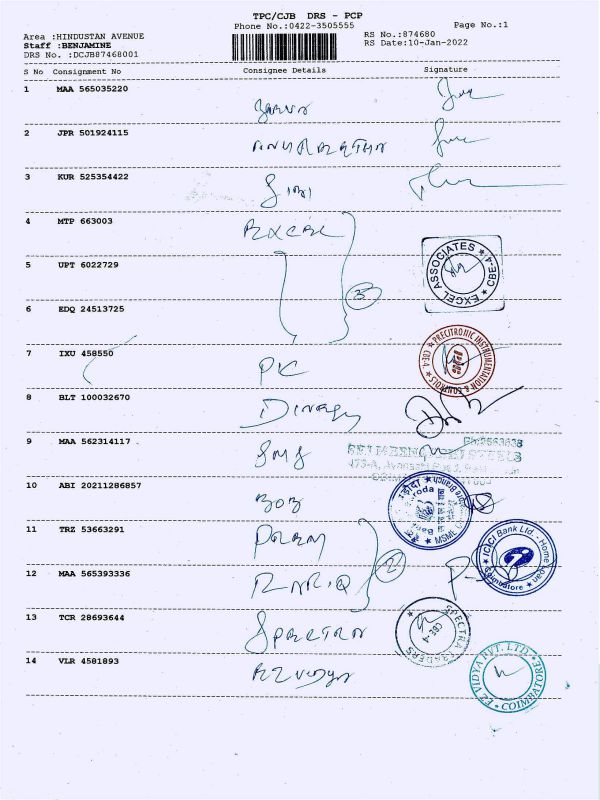 TPC/CJB DRS - PCP
Phone No.:0422-3505555
Page No.:1
Area :HINDUSTAN AVENUE
Staff :BENJAMINE
DRS No. :DCJB87468001
RS No.:874680
RS Date:10-Jan-2022
S No Consignment No Consignee Details Signature
1 MAA 565035220
2 JPR 501924115
3 KUR 525354422
4 MTP 663003
EXCEL ASSOCIATES ★ CBE-4 ★
5 UPT 6022729
6 EDQ 24513725
3
7 IXU 458550 PK
PRECITRONIC INSTRUMENTATION & CONTROLS
8 BLT 100032670
9 MAA 562314117 SMS
10 ABI 20211286857 BOB
11 TRZ 53663291
ICICI Bank Ltd. - Home Loan
Coimbatore
12 MAA 565393336
2
13 TCR 28693644
SPECTRA TRADERS
CBE-4
14 VLR 4581893 EZVidya
EZ VIDYA PVT. LTD. ★ COIMBATORE